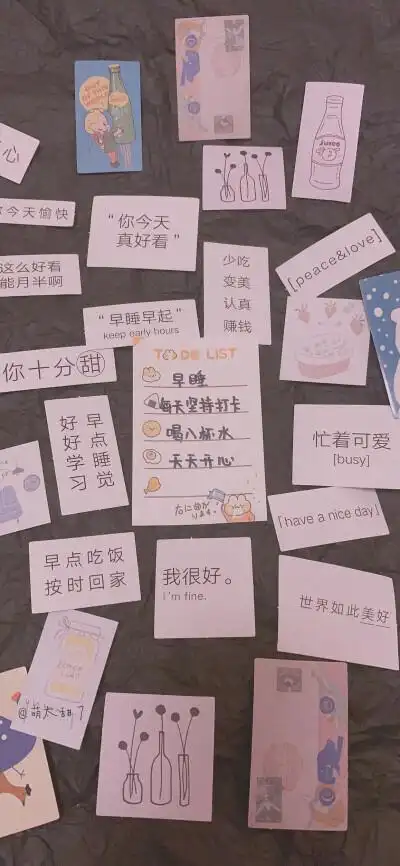 心
Juice
今天愉快
“你今天
真好看”
[peace&love]
这么好看
能月半啊
少吃
变美
认真
赚钱
“早睡早起”
keep early hours
TO DO LIST
早睡
每天坚持打卡
喝八杯水
天天开心
你十分甜
好好学习
早点睡觉
忙着可爱
[busy]
[have a nice day]
早点吃饭
按时回家
我很好。
I'm fine.
世界如此美好